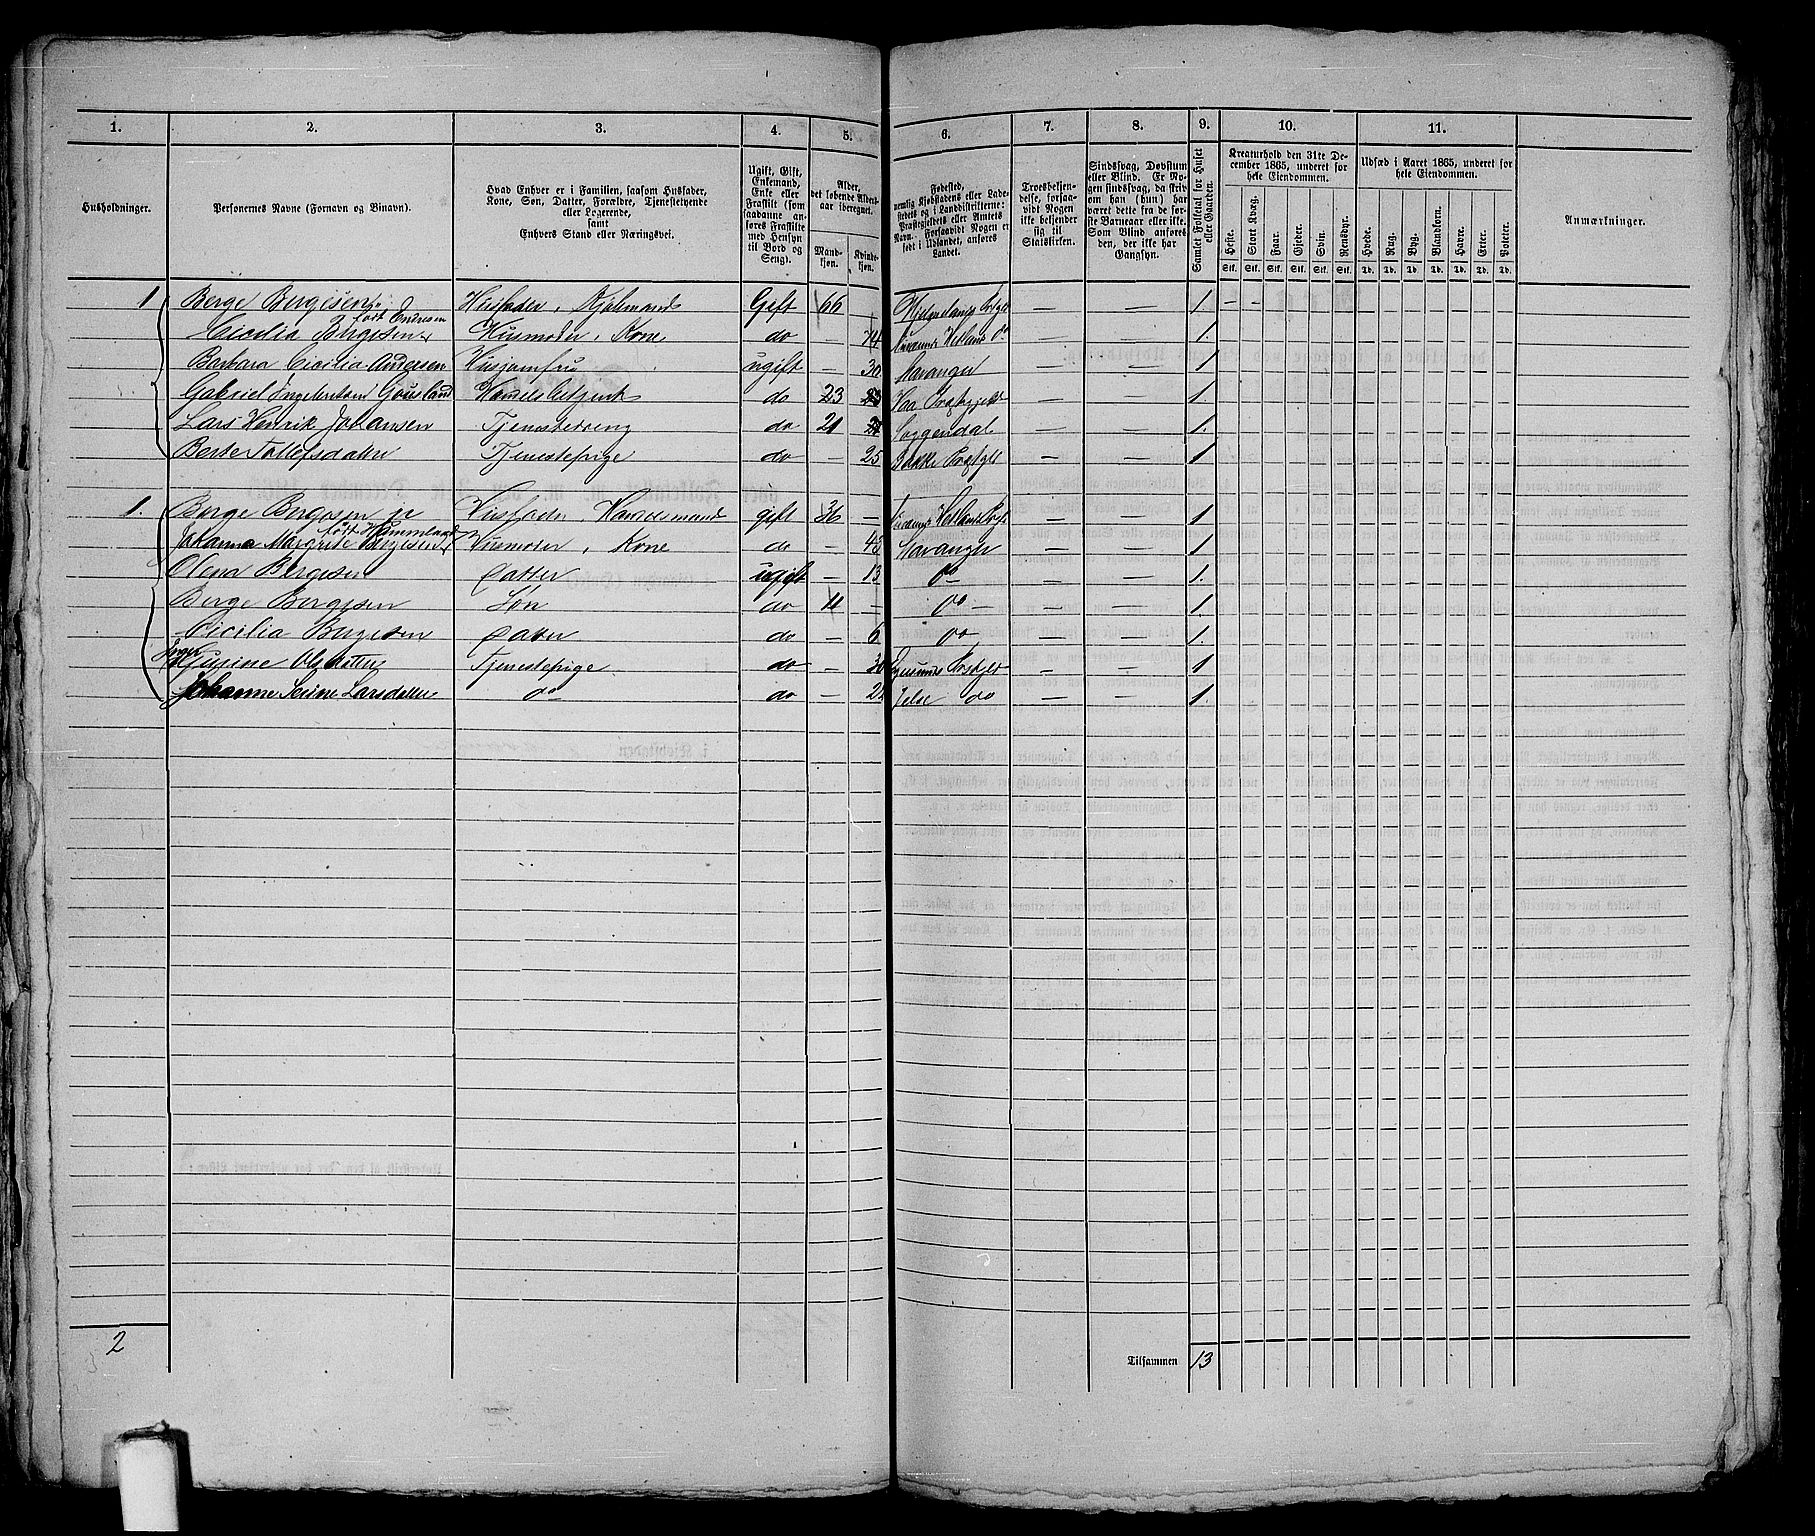 1. 2. 3. 4. 5. 6. 7. 8. 9. 10. 11.
Husholdninger.
Personernes Navne (Fornavn og Binavn).
Hvad Enhver er i Familien, saasom Husfader,
Kone, Søn, Datter, Forældre, Tjenestetyende
eller Logerende,
samt
Enhvers Stand eller Næringsvei.
Ugift, Gift,
Enkemand,
Enke eller
Fraskilt (som
saadanne an-
føres Fraskilte
med Hensyn
til Bord og
Seng).
Alder,
det løbende Alders-
aar iberegnet.
Mand-
kjøn.
Kvinde-
kjøn.
Fødested,
nemlig Kjøbstadens eller Lade-
stedets og i Landdistrikterne:
Præstegjeldets eller Amtets
Navn. Forsaavidt Nogen er
født i Udlandet, anføres
Landet.
Troesbekjen-
delse, forsaa-
vidt Nogen
ikke bekjender
sig til
Statskirken.
Sindssvag, Døvstum
eller Blind. Er No-
gen sindssvag, da skriv
om han (hun) har
været dette fra de før-
ste Barneaar eller ikke.
Som Blind anføres
den, der ikke har
Gangsyn.
Samlet Folketal for Huset
eller Gaarden.
Kreaturhold den 31te De-
cember 1865, underet for
hele Eiendommen.
Heste. Stort Kvæg. Faar. Gjeder. Svin. Rensdyr.
Stk. Stk. Stk. Stk. Stk. Stk.
Udsæd i Aaret 1865, underet for
hele Eiendommen.
Hvede. Rug. Byg. Blandkorn. Havre. Erter. Poteter.
Td. Td. Td. Td. Td. Td. Td.
Anmærkninger.
1 Berge Bergesen Husfader, Gift 66 — — — 1. — —
født Endresen
Cicilia Bergesen Husmoder, Kone do — 74 — — 1.
Barbara Cicilia Andersen Husjomfru ugift — 30 Stavanger — — 1
Gabriel Ingebretsen Gousland Handelsbetjent do 23 Haa — — 1.
Lars Henrik Johansen Tjenestedreng do 21 Soggendal — — 1.
Berte Tollefsdatter Tjenestepige do — 25 — — 1
1. Berge Bergesen jr Husfader, Handelsmand gift 36 — — — 1
født Hammeland
Johanna Margrete Bergesen Husmoder, Kone do — Stavanger — — 1
Olena Bergesen Datter ugift — 13 do — — 1.
Berge Bergesen Søn do 11 — do — — — 1
Cicilia Bergesen Datter do — 6 do — — 1.
Olsdatter Tjenestepige do — 30 — — 1
Johanne Serine Larsdatter do do — Jelse do — — 1.
2
Tilsammen 13